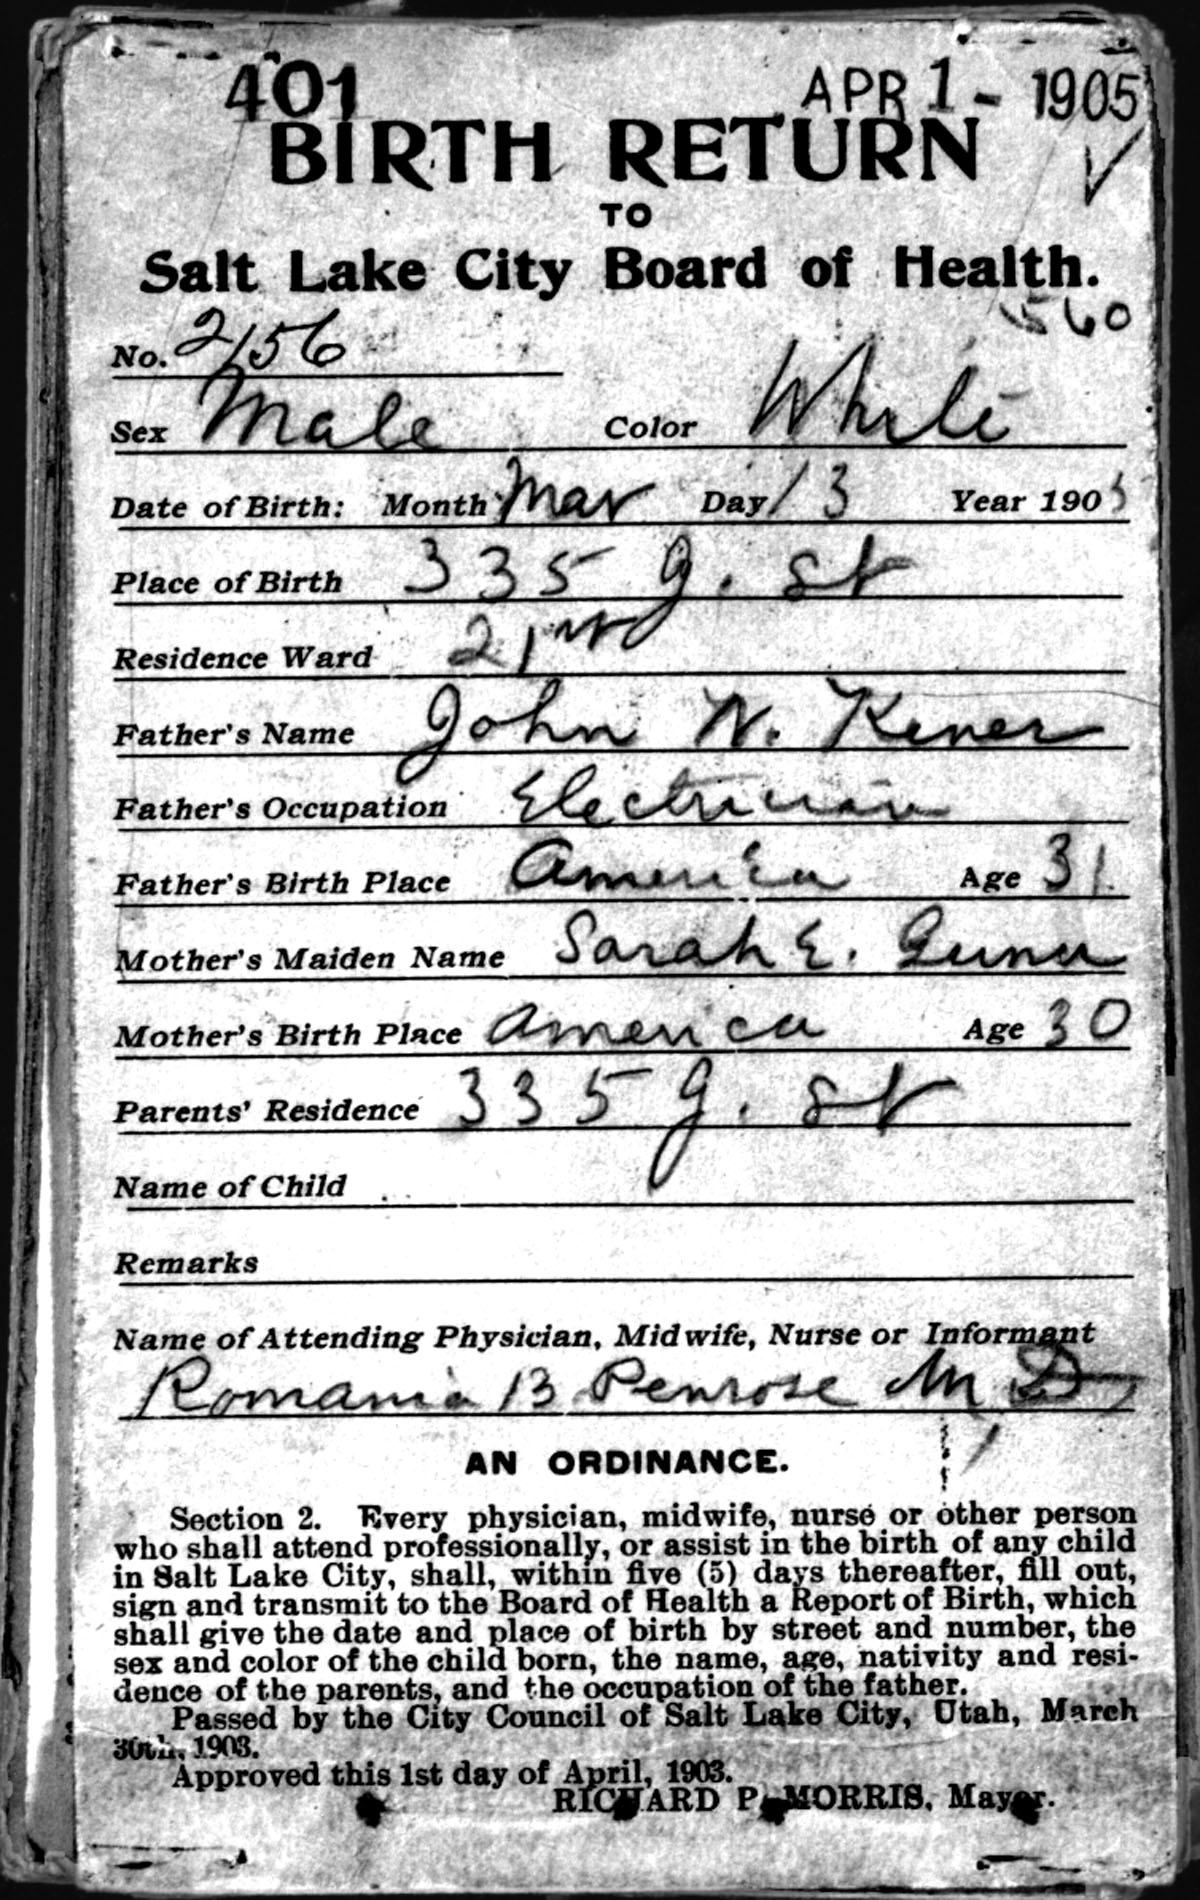 401 APR 1 - 1905
BIRTH RETURN
TO
Salt Lake City Board of Health.
560
No. 2156
Sex Male Color White
Date of Birth: Month Mar Day 13 Year 1905
Place of Birth 335 G. St
Residence Ward 21st
Father's Name John W. Kener
Father's Occupation Electrician
Father's Birth Place America Age 31
Mother's Maiden Name Sarah E. Gunn
Mother's Birth Place America Age 30
Parents' Residence 335 G. St
Name of Child
Remarks
Name of Attending Physician, Midwife, Nurse or Informant
Romania B Penrose M D
AN ORDINANCE.
Section 2. Every physician, midwife, nurse or other person
who shall attend professionally, or assist in the birth of any child
in Salt Lake City, shall, within five (5) days thereafter, fill out,
sign and transmit to the Board of Health a Report of Birth, which
shall give the date and place of birth by street and number, the
sex and color of the child born, the name, age, nativity and resi-
dence of the parents, and the occupation of the father.
Passed by the City Council of Salt Lake City, Utah, March
30th, 1903.
Approved this 1st day of April, 1903.
RICHARD P. MORRIS, Mayor.